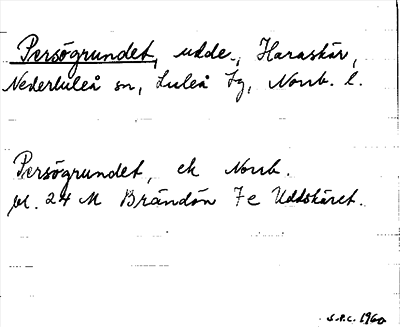 Persögrundet, udde, Haraskär,
Nederluleå sn, Luleå tg, Norrb. l.
Persögrundet, ek Norrb.
bl. 24 M Brändön 7e Uddskäret.
S.P.C. 1960